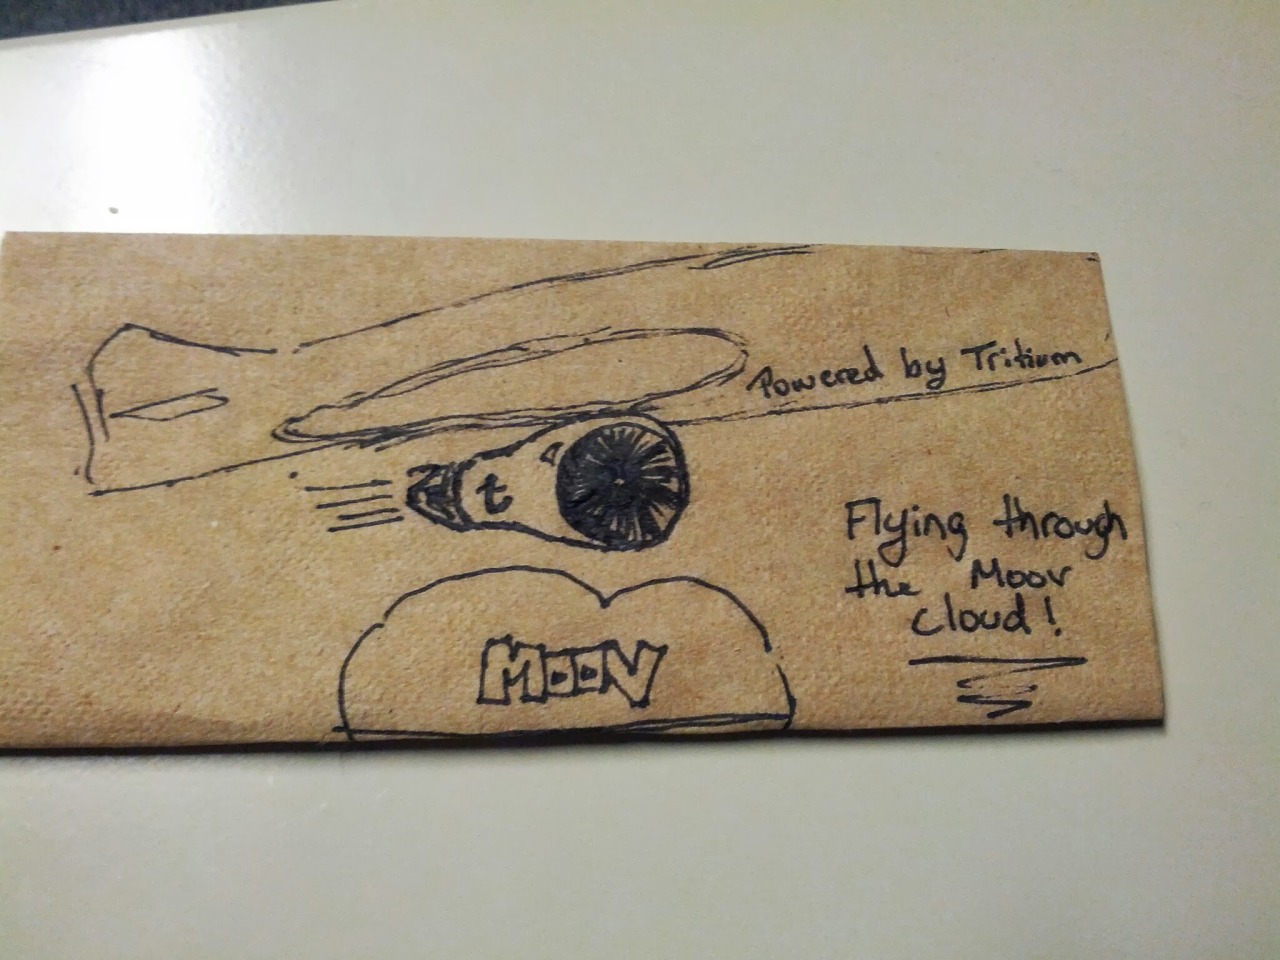 Powered by Tritium
t
Flying through
the Moov
cloud!
MOOV